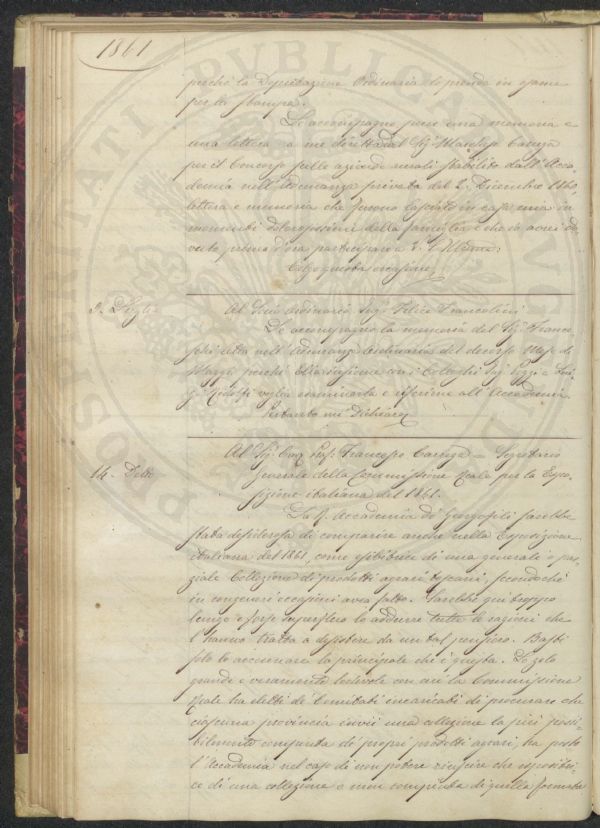 1861
perché la Deputazione Ordinaria lo prenda in esame
per la stampa.
Le accompagno pure una memoria e
una lettera a me diretta dal Sig. Marchese Carega
per il Concorso sulle aziende rurali stabilito dall'Acca-
demia nell'Adunanza privata del 2. Dicembre 1860,
lettera e memoria che furono lasciate in casa mia in
momenti dolorosissimi della famiglia e che io avrei do-
vuto prima d'ora partecipare a
Colgo questa occasione
9. Luglio
Al Socio ordinario Sig. Felice Francolini
Le accompagno la memoria del Sig.
letta nell'Adunanza ordinaria del decorso Mese di
perché Ella insieme con i Colleghi Sig.
Ridolfi voglia esaminarla e riferirne all'Accademia.
Pertanto mi Dichiaro
14. Detto
Al Sig. Cav. Prof. Francesco Carega = Segretario
Generale della Commissione Reale per la Espo-
sizione italiana del 1861.
La R. Accademia de' Georgofili sarebbe
stata desiderosa di comparire anche nella Esposizione
italiana del 1861, come esibitrice di una generale o par-
ziale Collezione di prodotti agrari toscani, secondoché
in congeneri occasioni avea fatto. Sarebbe qui troppo
lungo e forse superfluo lo addurre tutte le ragioni che
l'hanno tratta a desistere da un tal pensiero. Basti
solo lo accennare la principale che è questa. Lo zelo
grande e veramente lodevole con cui la Commissione
Reale ha eletti de' Comitati incaricati di procurare che
ciascuna provincia invii una collezione la più possi-
bilmente compiuta de' propri prodotti agrari, ha posto
l'Accademia nel caso di non potere riuscire che espositri-
ce di una collezione o men compiuta di quella formata